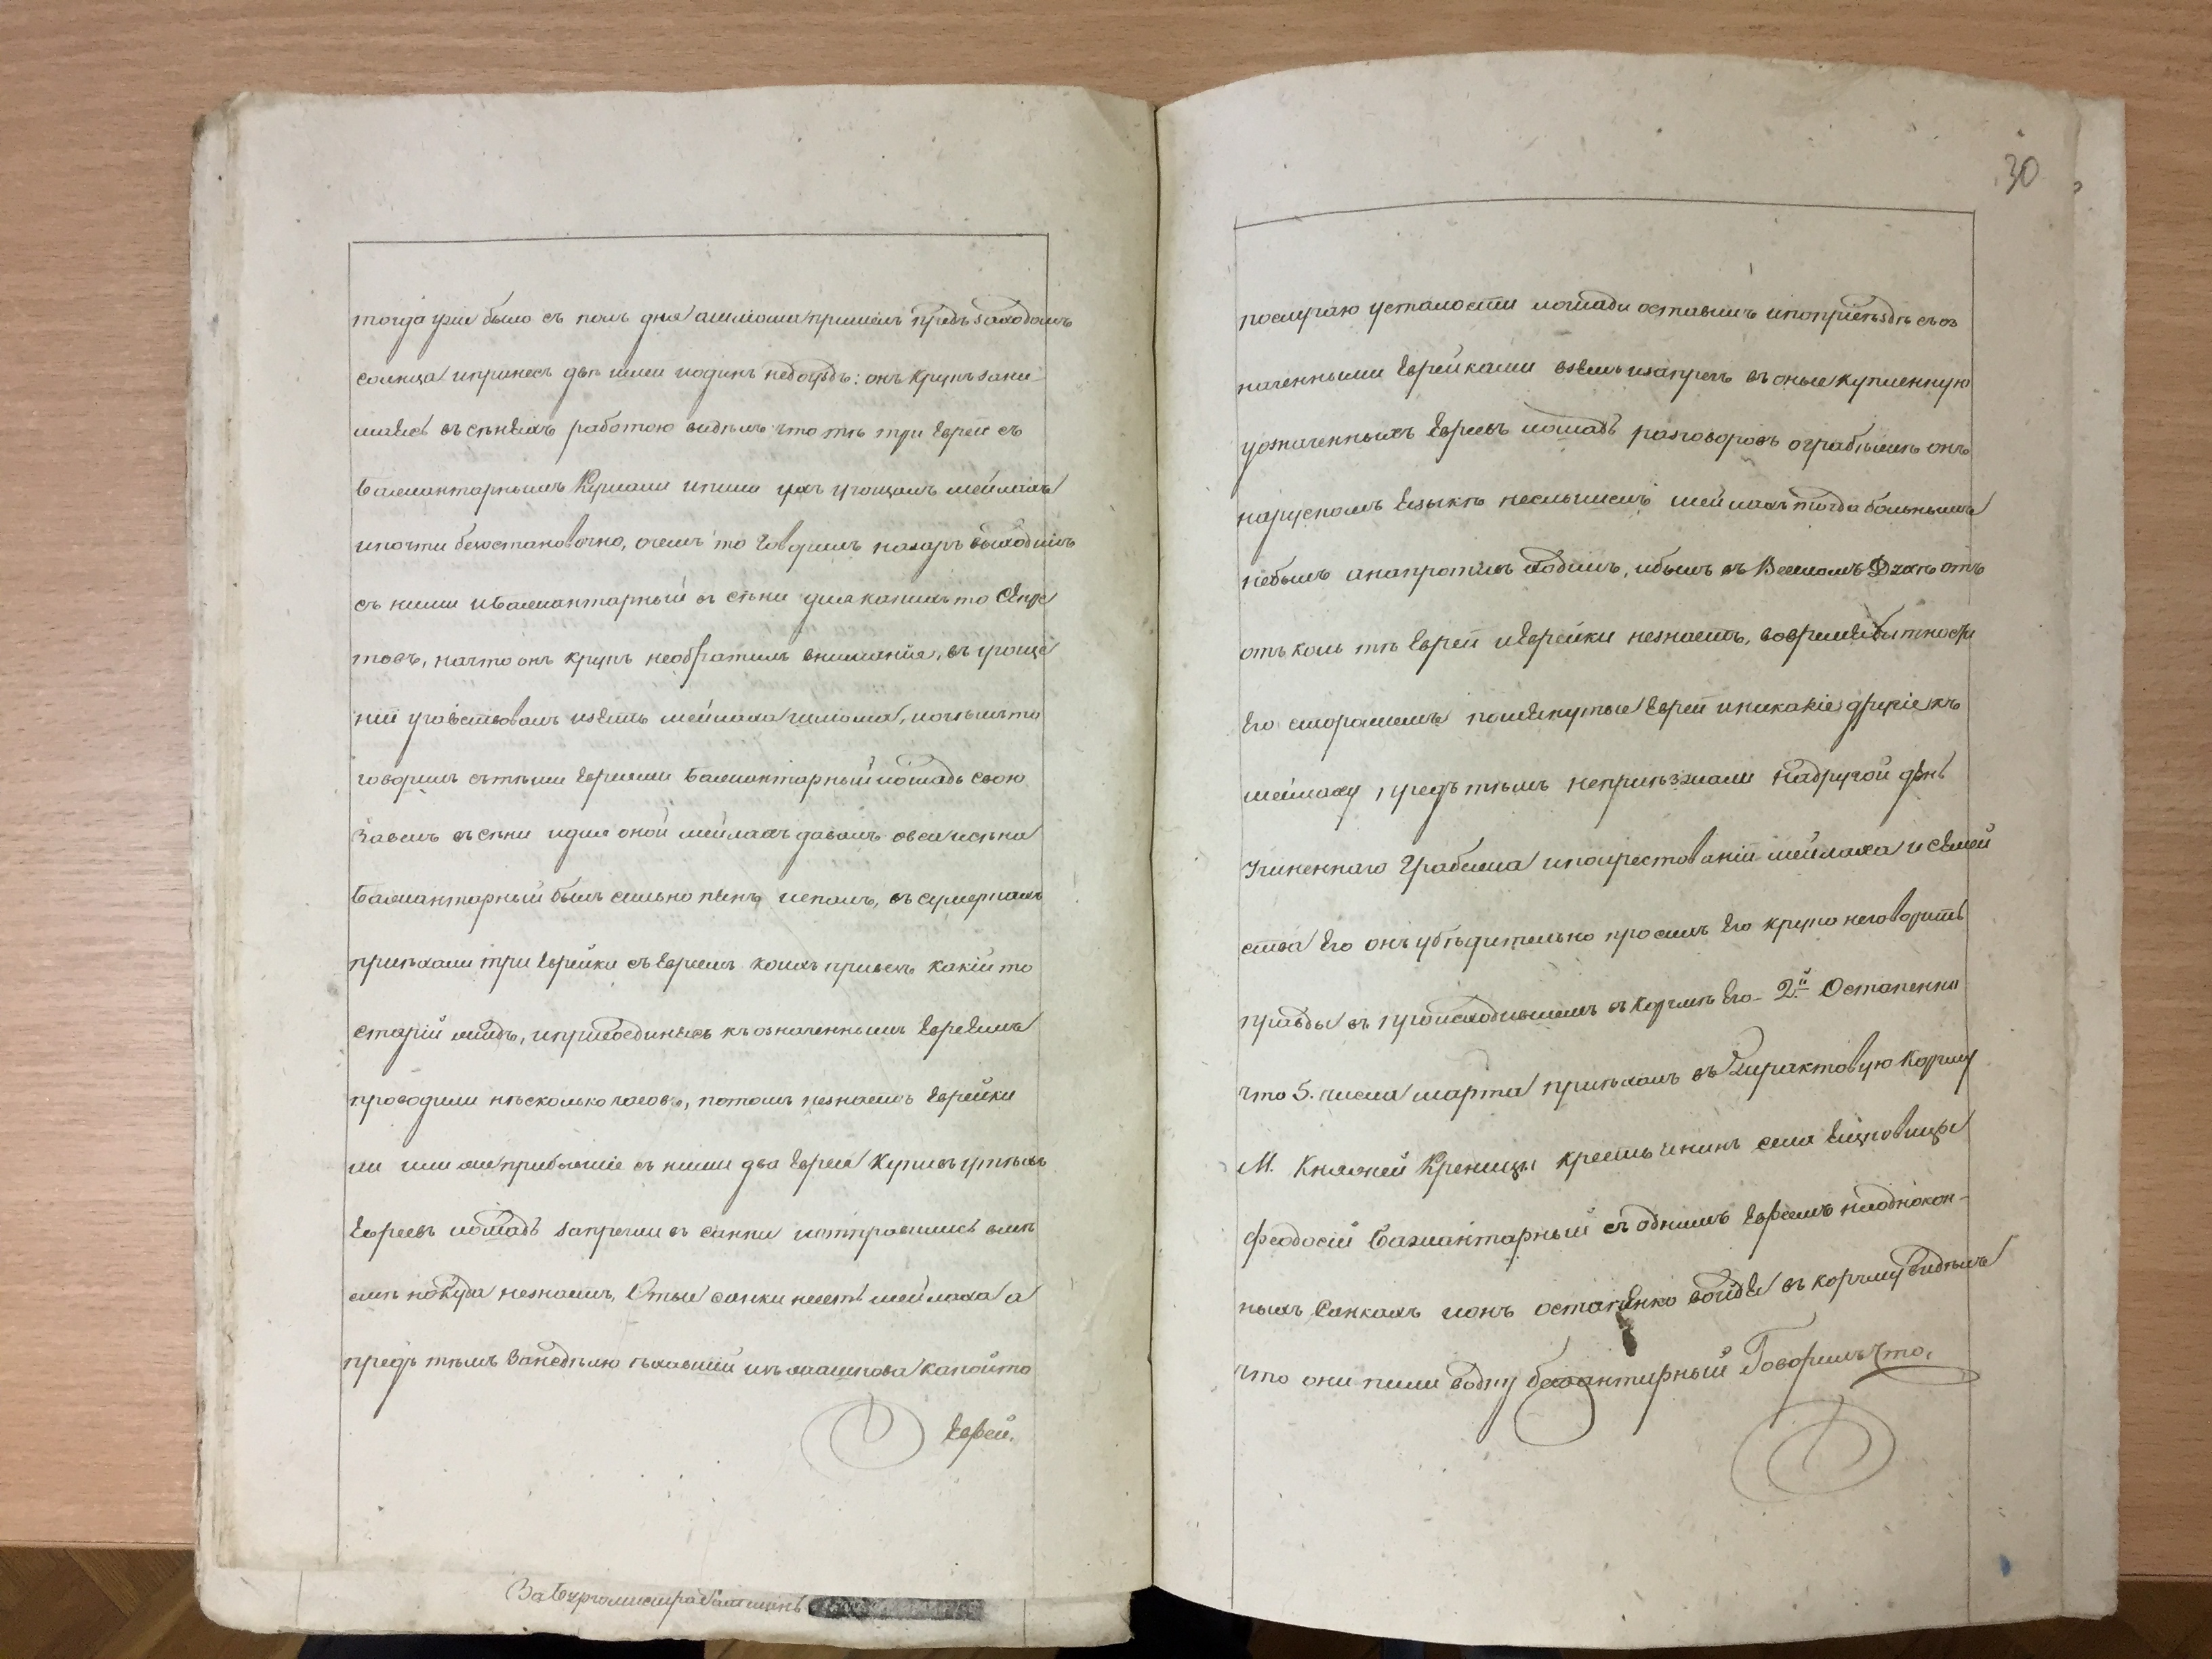 тогда уже было съ полъ дня а шлюма пришелъ предъ заходомъ
солнца и принесъ двѣ или и одинъ : онъ Крупъ зани-
маясь въ сѣняхъ работою видѣлъ что тѣ три Еврея съ
Баламантарнымъ Курили и пили ихъ угощалъ мейлахъ
и почти безостановочно, о чемъ то говорилъ назаръ выходилъ
съ ними и Баламантарный въ сѣни для какихъ то Секре
товъ, на что онъ крупъ необратилъ вниманія, въ угоще
ніи участвовалъ и зять мейлаха шлюма, и о чемъ то
говорилъ сътѣми Евреями Баламантарный лошадь свою
Завелъ въ сѣни и для оной мейлахъ давалъ овса и сѣна
Баламантарный былъ сильно пянъ и спалъ, въ сумеркахъ
приѣхали три Еврейки съ Евреемъ коихъ привезъ какій то
старій жидъ, и приобединясь къ означеннымъ Евреямъ
проводили нѣсколько часовъ, потомъ незнаетъ Еврейки
ли или же прибывшіе съ ними два Еврея Купивъ у тѣхъ
Евреевъ лошадь запрегли въ санки и отправились вмѣ
стѣ но куда незнаетъ, Етые санки несть мейлаха а
предъ тѣмъ Занедѣлю ѣхавшій какойто
Еврей.
30
послучаю усталости лошади оставилъ и поприѣздѣ съ оз
наченными Еврейками взялъ и запрегъ въ оные купленную
уозначенныхъ Евреевъ лошадь разговоровъ о грабѣжѣ онъ
нарускомъ Езыкѣ неслышелъ мейлахъ тогда больнымъ
небылъ а напротивъ ходилъ, и былъ въ Веселомъ Духѣ отъ
отъ коль тѣ Евреи и Еврейки незнаетъ, вовремя бытности
Его сторожемъ помянутые Евреи и никакіе другіе къ
мейлаху предъ тѣмъ неприѣзжали надругой день
Учиненнаго Грабежа и по арестованіи мейлаха и семей
ства Его онъ убѣдительно просилъ Его крупа неговорить
правды въ происходившемъ въ Корчмѣ Его- 2.й Остапенко
что 5. числа марта приѣхалъ въ Трактовую Корчму
М. Княжей Креницы крестьянинъ села
Феодосій Баламантарный съ однимъ Евреемъ наоднокон-
ныхъ Санкахъ и онъ остапенко войдя въ корчму видѣлъ
что они пили водку Говорилъ что,